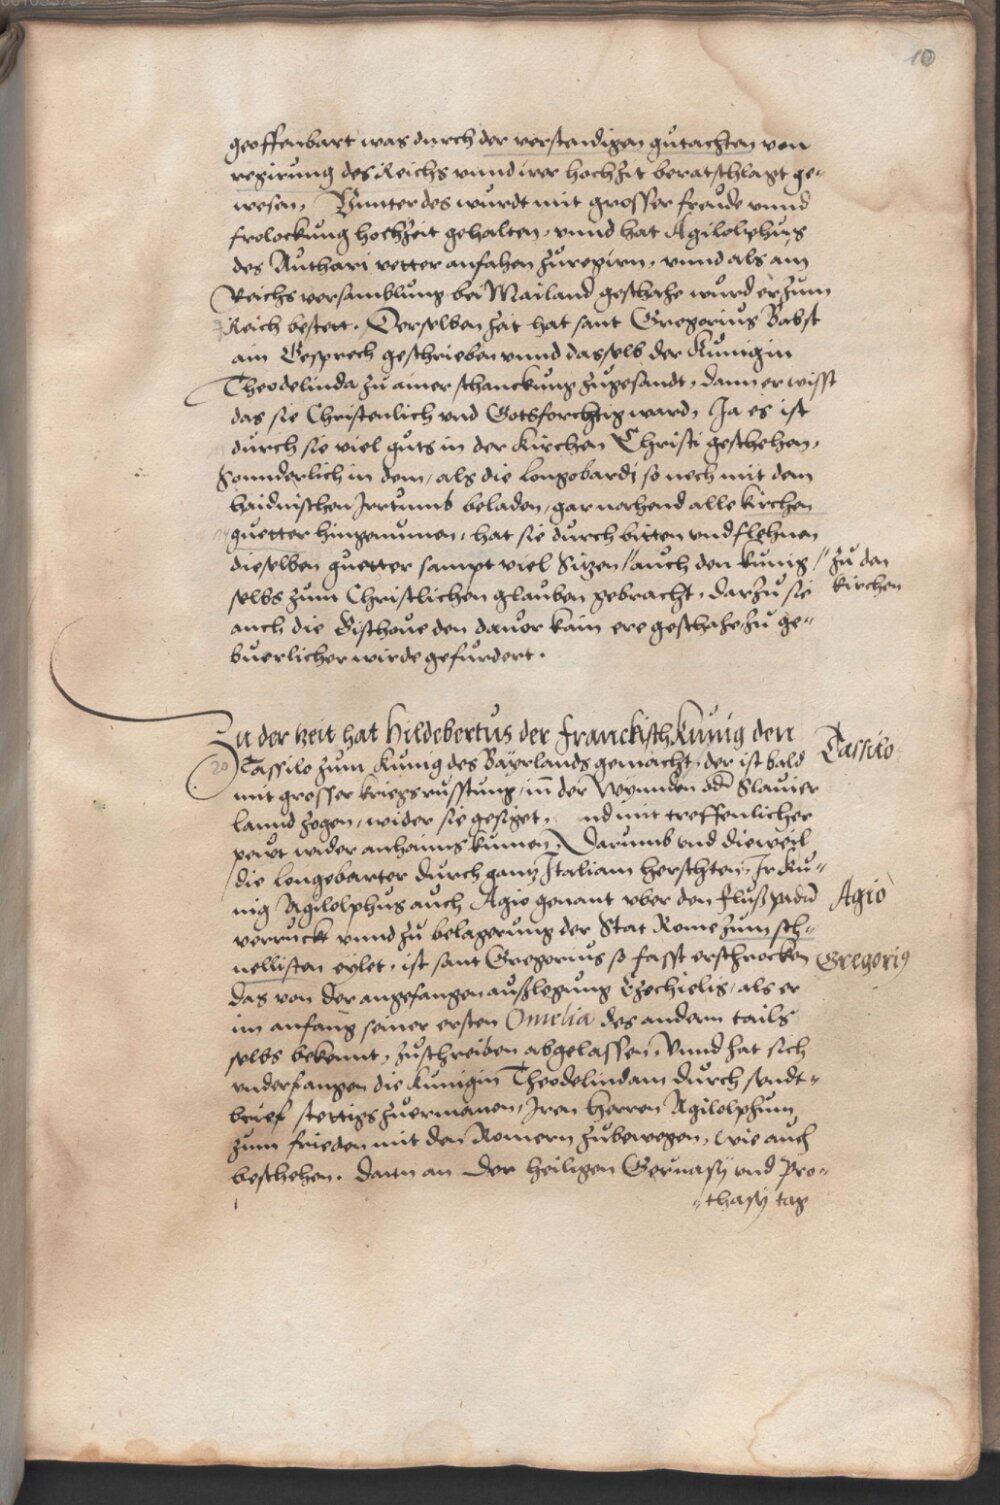 10
geoffenbart was durch der verstendigen gutachten von
regirung des Reichs vnnd irer hochzit beratschlagt ge-
wesen. Vnnter des wurdt mit grosser freude vnnd
frolockung hochzeit gehalten, vnnd hat Agilolphus
des Authari vetter anfahen zuregirn, vnnd als ain
Reichs versamblung bei Mailand geschehe wurd er zum
Reich bestett. Derselben zeit hat sant Gregorius Babst
ain Gesprech geschrieben vnnd dasselb der Kunigin
Theodelinda zu ainer schanckung zugesandt, dann er wisst
das sie Christenlich vnd Gotsforchtig ward, Ja es ist
durch sie viel guts in der Kirchen Christi geschehen,
Sonnderlich in dem, als die Longobardi so noch mit dem
haidnischen Irrtumb beladen, gar nochend alle kirchen
guetter hingenumen, hat sie durch bitten vnd flehnen
dieselben guetter sampt viel Sitzen // auch den kunig // zu den
kirchen
selbs zum Christlichen glauben gebracht, darzu sie
auch die Bischoue den dauor kain ere geschahe, zu ge-
buerlicher wirde gefurdert.
Zu der zeit hat Hildebertus der Franckisch Kunig den
Tassilo
20 Tassilo zum Kunig des Bayrlands gemacht, der ist bald
mit grosser kriegsrusstung, in der Wynnden oder Slauier
lannd zogen, wider sie gesiget, nd mit treffenlicher
peut wider anhaims kumen. Darumb vnd dieweil
die Longobarter durch gantz Italiam herschten, Ir Ku-
nig Agilolphus auch Agio genant vber den fluß padu
Agio
verruckt vnnd zu belagerung der Stat Rome zum sch-
nellisten eylet, ist sant Gregorius so fasst erschrocken
Gregorius
das von der angefangen außlegung Ezechielis, als er
im anfang seiner ersten Omelia des andern tails
selbs bekennt, zuschreiben abgelassen, Vnnd hat sich
vnderfangen die Kunigin Theodelindam durch sendt-
brief stettigs zuermanen, Iren Herren Agilolphum
zum frieden mit den Romern zubewegen, wie auch
beschehen. Dann an der heiligen Geruasy vnd Pro-
-thasy tag